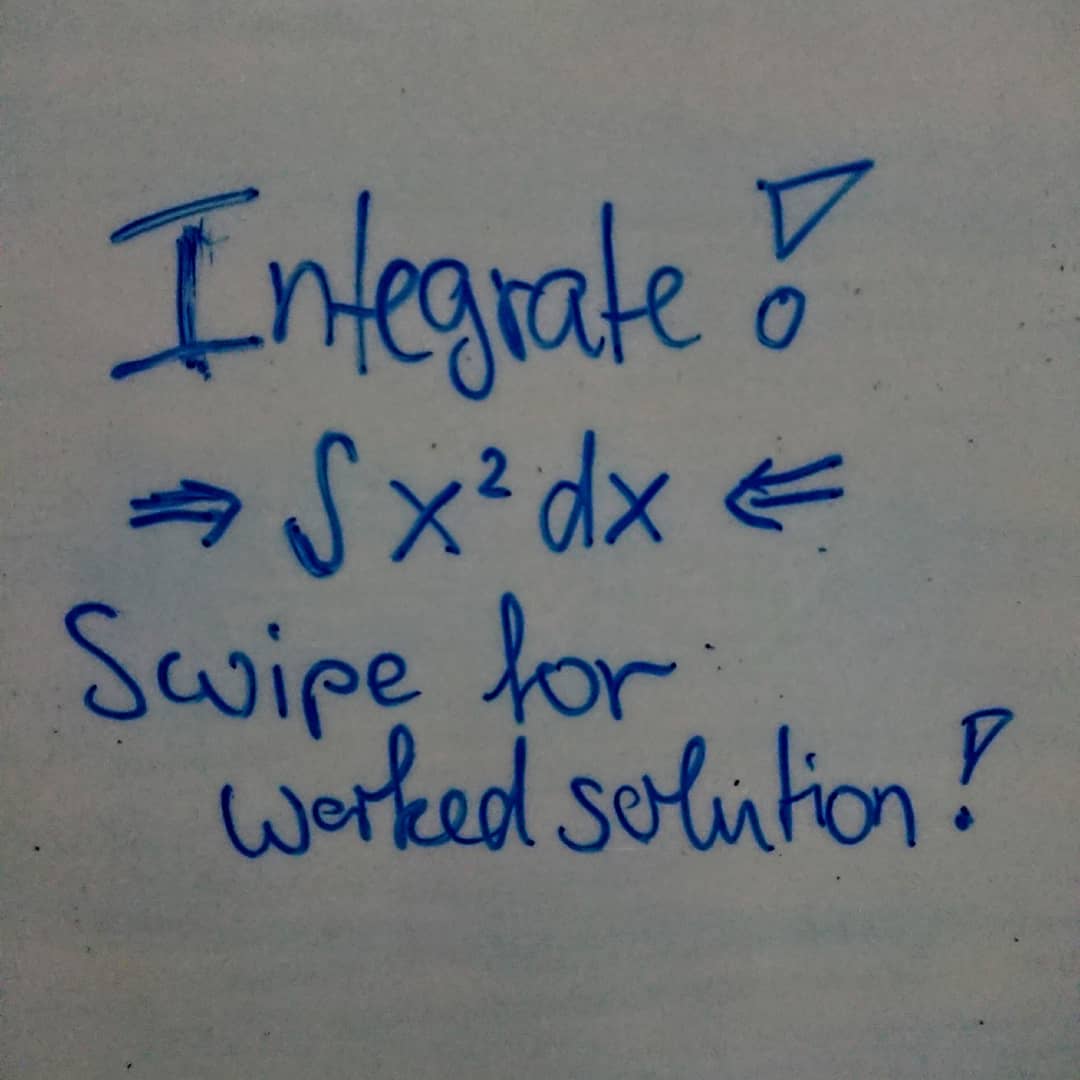 Integrate!
⇒ ∫ x² dx ⇐
Swipe for
worked solution!